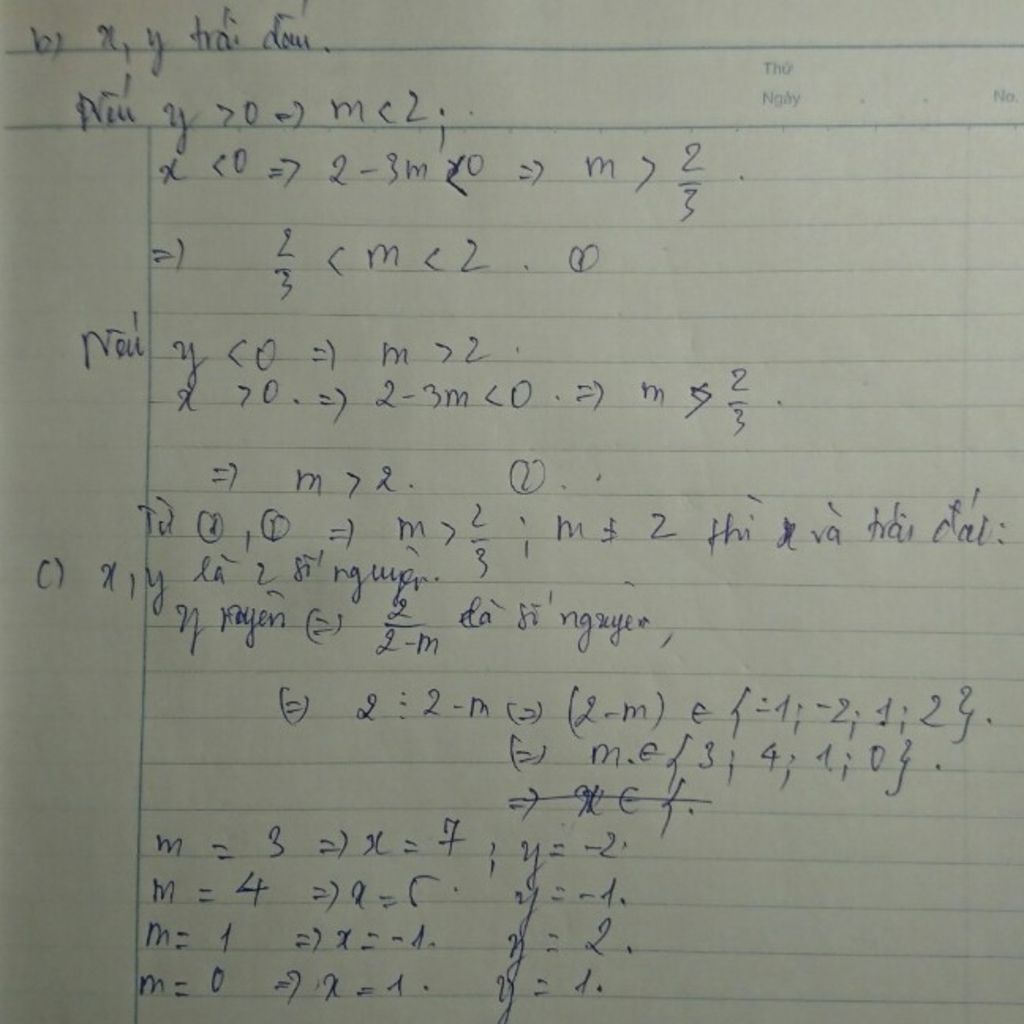 b) x, y trái dấu.
Thứ
Ngày . . No.
Nếu y > 0 => m < 2;
x < 0 => 2 - 3m < 0 => m > 2/3 .
=> 2/3 < m < 2 . ①
Nếu y < 0 => m > 2 .
x > 0 . => 2 - 3m < 0 . => m > 2/3 .
=> m > 2 . ② . .
Từ ②, ① => m > 2/3 ; m ≠ 2 thì x và trái dấu.
c) x, y là 2 số nguyên.
y nguyên <=> 2/(2-m) là số nguyên,
<=> 2 ⋮ 2-m <=> (2-m) ∈ {-1; -2; 1; 2}.
<=> m ∈ {3; 4; 1; 0}.
=> x ∈ {.
m = 3 => x = 7 ; y = -2.
m = 4 => x = 5 . y = -1.
m = 1 => x = -1. y = 2.
m = 0 => x = 1. y = 1.